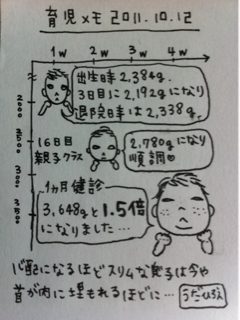 育児メモ 2011.10.12
1w 2w 3w 4w
出生時2,384g.
3日目に2,192gになり
退院日時は2,338g。
2000
2500
3000
3500
16日目
親子クラス
2,780gになり
順調♡
1ヵ月健診
3,648gと1.5倍
になりました…
心配になるほどスリムな息子は今や
首が肉に埋もれるほどに…
うだひろえ